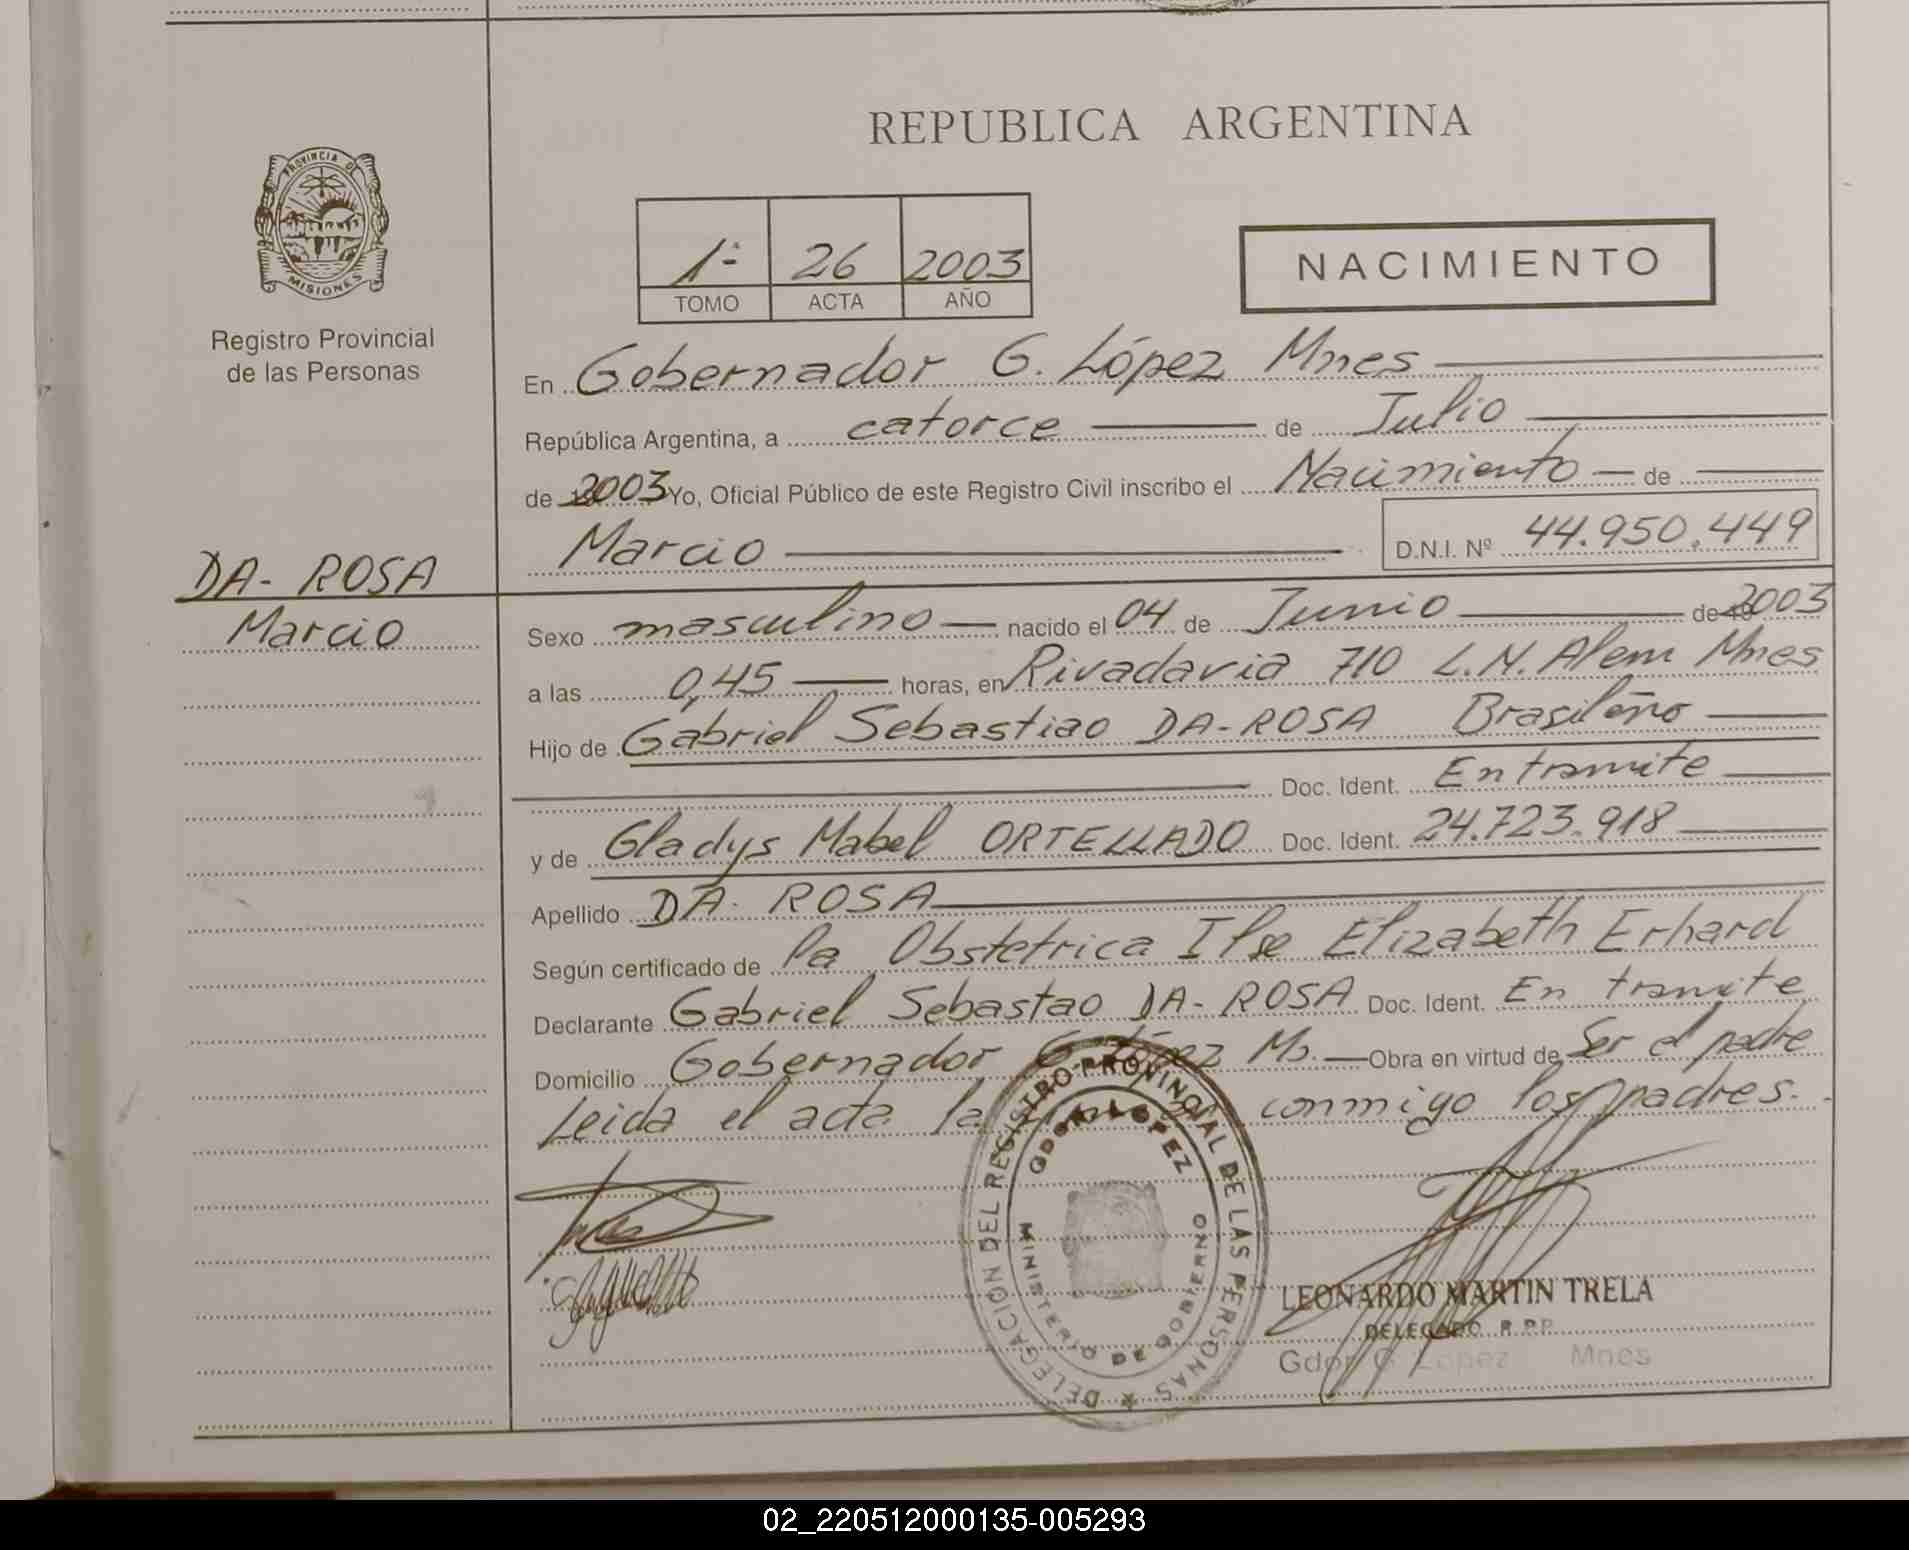 PROVINCIA DE
MISIONES
Registro Provincial
de las Personas
DA- ROSA
Marcio
REPUBLICA ARGENTINA
1º 26 2003
TOMO ACTA AÑO
NACIMIENTO
En Gobernador G. López Mnes
República Argentina, a catorce de Julio
de 2003 Yo, Oficial Público de este Registro Civil inscribo el Nacimiento de
Marcio D.N.I. Nº 44.950.449
Sexo masculino nacido el 04 de Junio de 19 2003
a las 0,45 horas, en Rivadavia 710 L.N. Alem Mnes
Hijo de Gabriel Sebastiao DA-ROSA Brasileño
Doc. Ident. En tramite
y de Gladys Mabel ORTELLADO Doc. Ident. 24.723.918
Apellido DA- ROSA
Según certificado de la Obstetrica Ilse Elizabeth Erhard
Declarante Gabriel Sebastao DA- ROSA Doc. Ident. En tramite
Domicilio Gobernador G López Ms. Obra en virtud de Ser el padre
Leida el acta la conmigo los padres.
DELEGACION DEL REGISTRO PROVINCIAL DE LAS PERSONAS
GDOR. LOPEZ
MINISTERIO DE GOBIERNO
LEONARDO MARTIN TRELA
DELEGADO R.P.P.
Gdor G Lopez Mnes
02_220512000135-005293